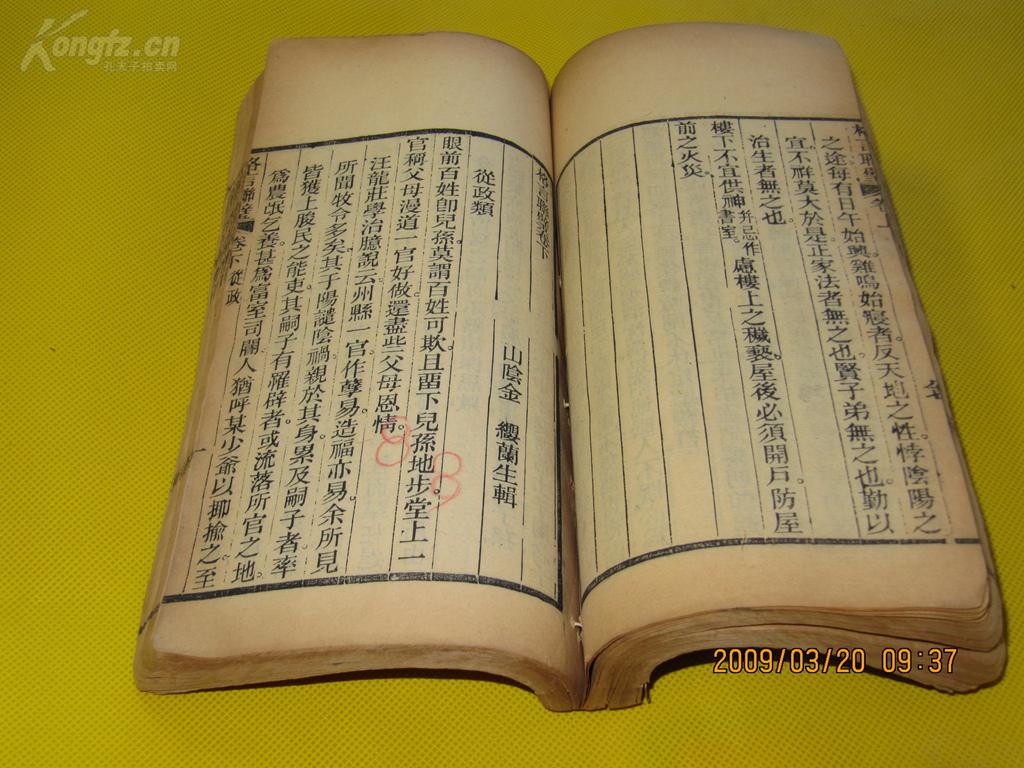 之途每有日午始興雞鳴始寢者反天地之性悖陰陽之
宜不祥莫大於是正家法者無之也賢子弟無之也勤以
治生者無之也
樓下不宜供神并忌作書室。慮樓上之穢褻屋後必須開戶防屋
前之火災。
格言聯璧卷下
山陰金 纓蘭生輯
從政類
眼前百姓卽兒孫莫謂百姓可欺且畱下兒孫地步堂上一
官稱父母漫道一官好做還盡些父母恩情。
汪龍莊學治臆說云州縣一官作孽易造福亦易。余所見
所聞牧令多矣其于陽譴陰禍親於其身累及嗣子者率
皆獲上朘民之能吏其嗣子有罹辟者或流落所官之地
爲農氓乞養甚爲富室司閽人猶呼某少爺以揶揄之至
格言聯璧 卷下 從政
Kongfz.cn
孔夫子拍卖网
2009/03/20 09:37